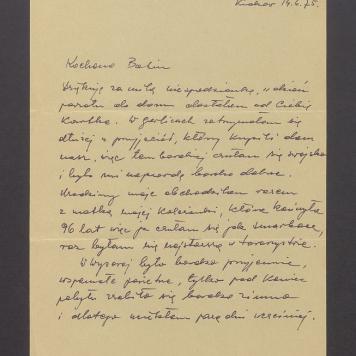 Kraków 14.6.75.
Kochana Basiu
Dziękuję za miłą niespodziankę, w dzień
powrotu do domu dostałam od Ciebie
kartkę. W Gorlicach zatrzymałam się
dłużej u przyjaciół, którzy kupili dom
nasz, więc tem bardziej czułam się swojsko
i było mi naprawdę bardzo dobrze.
Urodziny moje obchodziłam razem
z matką mojej koleżanki, która kończyła
96 lat więc ja czułam się jak smarkacz,
raz byłam się najstarszą w towarzystwie.
W Wysowej było bardzo przyjemnie,
wspaniałe powietrze, tylko pod koniec
pobytu zrobiło się bardzo zimno
i dlatego wróciłam parę dni wcześniej.